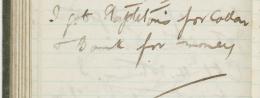 I got Appletons for Cotton
& Bank for money